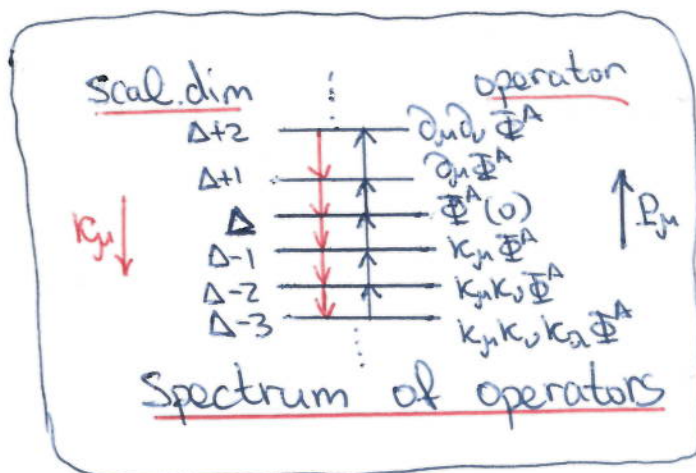 scal.dim operator
Δ+2 ∂μ∂νΦ^A
Δ+1 ∂μΦ^A
Δ Φ^A(0)
Kμ Pμ
Δ-1 KμΦ^A
Δ-2 KμKνΦ^A
Δ-3 KμKνKλΦ^A
Spectrum of operators